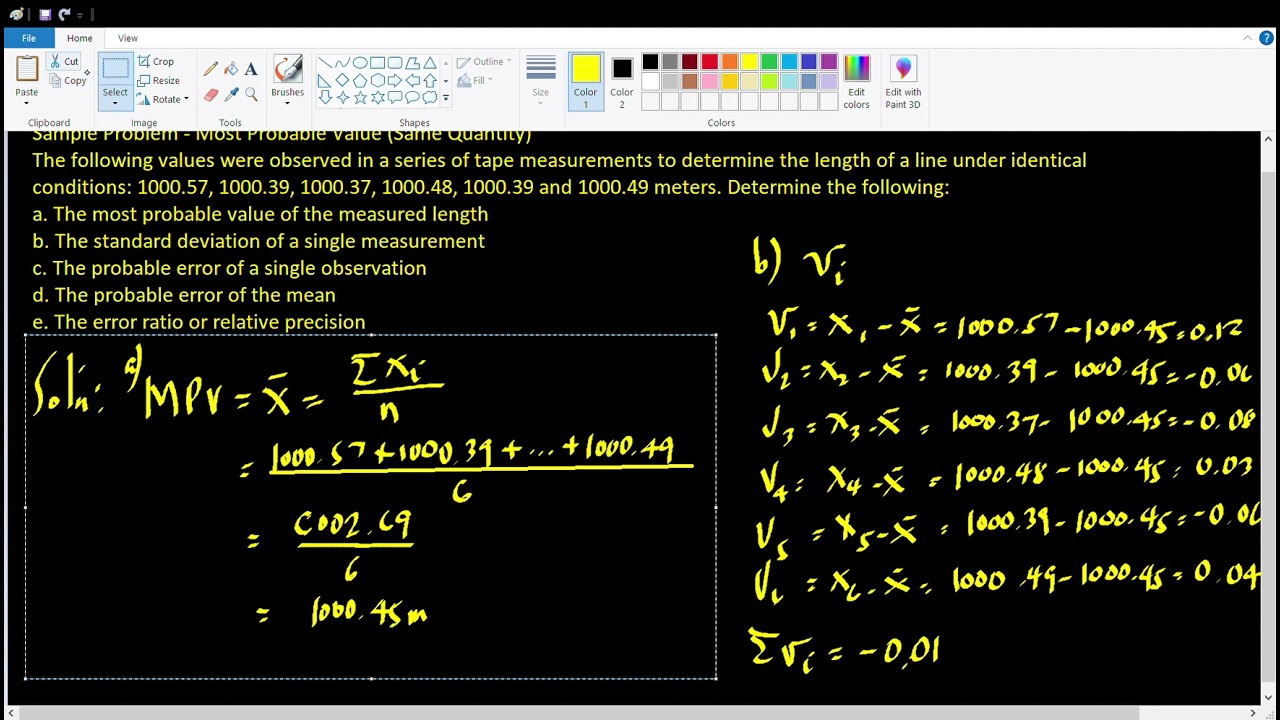 File Home View
Cut
Copy
Paste
Clipboard
Select
Crop
Resize
Rotate
Image
A
Tools
Brushes
Shapes
Outline
Fill
Size
Color 1
Color 2
Colors
Edit colors
Edit with Paint 3D
Sample Problem - Most Probable Value (Same Quantity)
The following values were observed in a series of tape measurements to determine the length of a line under identical
conditions: 1000.57, 1000.39, 1000.37, 1000.48, 1000.39 and 1000.49 meters. Determine the following:
a. The most probable value of the measured length
b. The standard deviation of a single measurement
c. The probable error of a single observation
d. The probable error of the mean
e. The error ratio or relative precision
Soln: a) MPV = x̄ = Σxi / n
= 1000.57 + 1000.39 + ... + 1000.49 / 6
= 6002.69 / 6
= 1000.45 m
b) vi
V1 = x1 - x̄ = 1000.57 - 1000.45 = 0.12
V2 = x2 - x̄ = 1000.39 - 1000.45 = -0.06
V3 = x3 - x̄ = 1000.37 - 1000.45 = -0.08
V4 = x4 - x̄ = 1000.48 - 1000.45 = 0.03
V5 = x5 - x̄ = 1000.39 - 1000.45 = -0.06
V6 = x6 - x̄ = 1000.49 - 1000.45 = 0.04
Σvi = -0.01